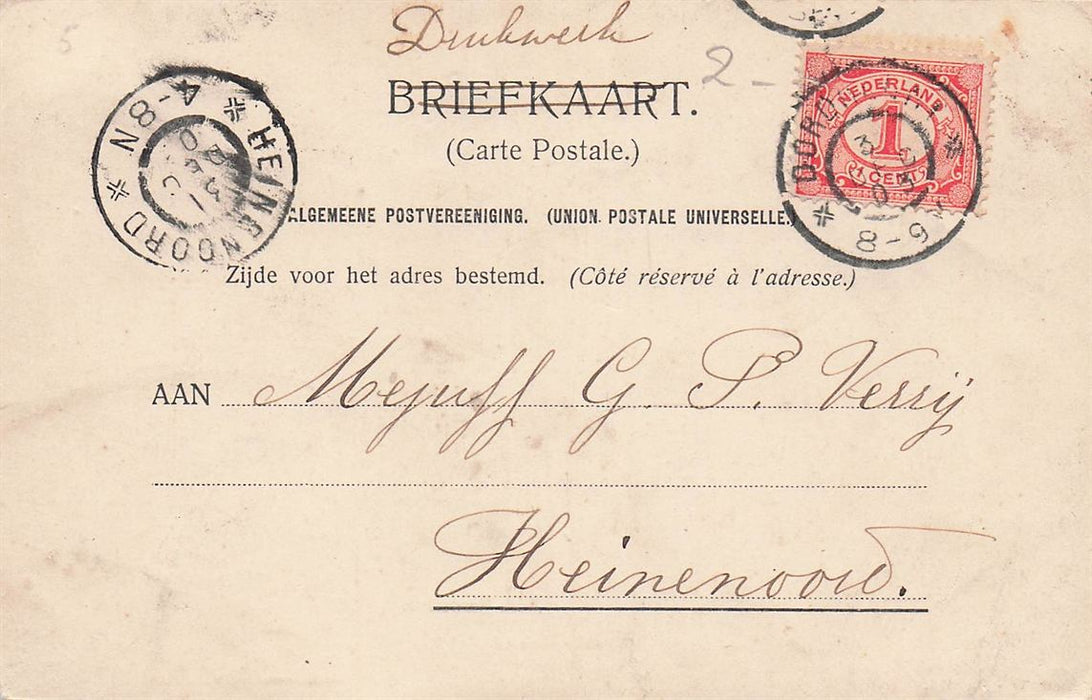 5
Drukwerk
2-
BRIEFKAART.
(Carte Postale.)
ALGEMEENE POSTVEREENIGING. (UNION POSTALE UNIVERSELLE.)
Zijde voor het adres bestemd. (Côté réservé à l'adresse.)
HEINENOORD
4-8N
NEDERLAND
1
1 CENT
DORD
8-9
AAN Mejuff G. P. Verrij
Heinenoord.